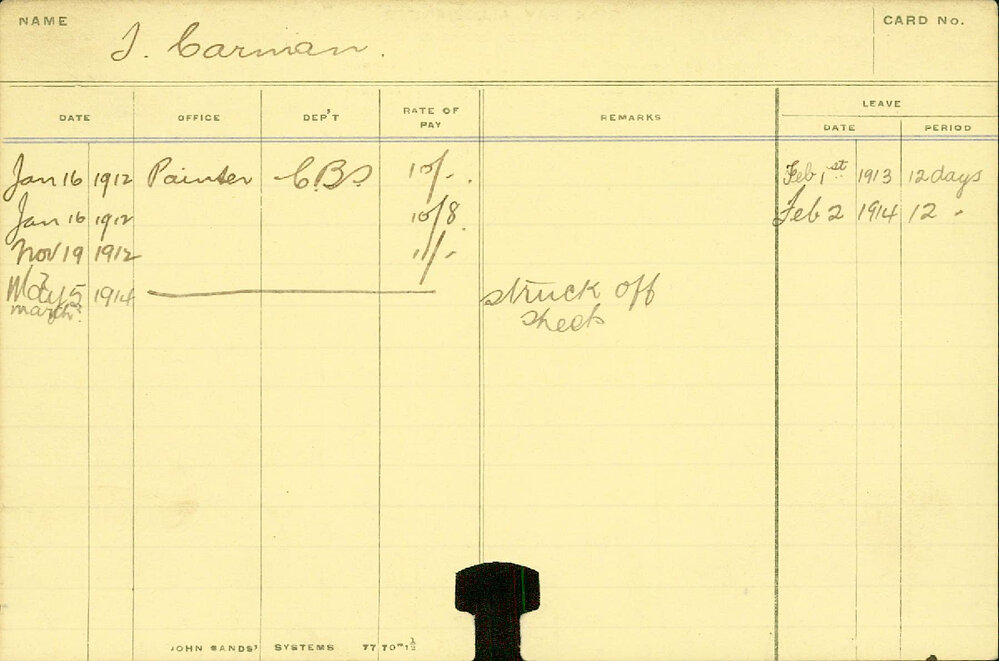 NAME
CARD No.
J. Carman.
DATE OFFICE DEP'T RATE OF PAY REMARKS LEAVE
DATE PERIOD
Jan 16 1912 Painter C.B.S 10/-. Feb 1st 1913 12 days
Jan 16 1912 10/8 Feb 2 1914 12 "
Nov 19 1912 11/-
May 5 1914 struck off
march? sheets
JOHN SANDS' SYSTEMS 77